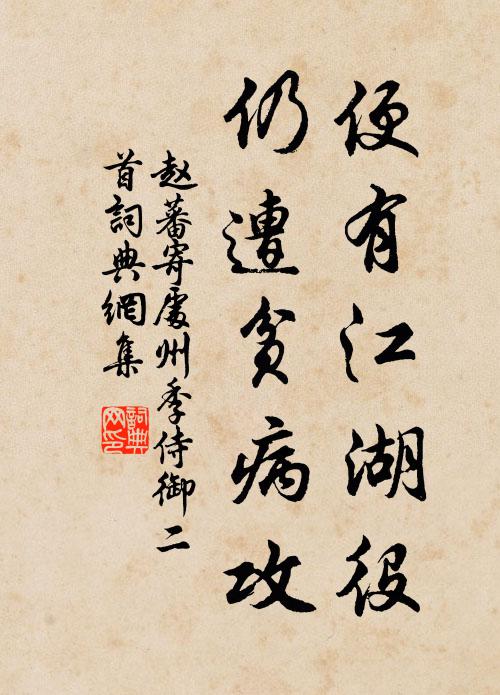 便有江湖役
仍遭贫病攻
赵蕃寄处州季侍御二
首詞典網集
詞典
网印